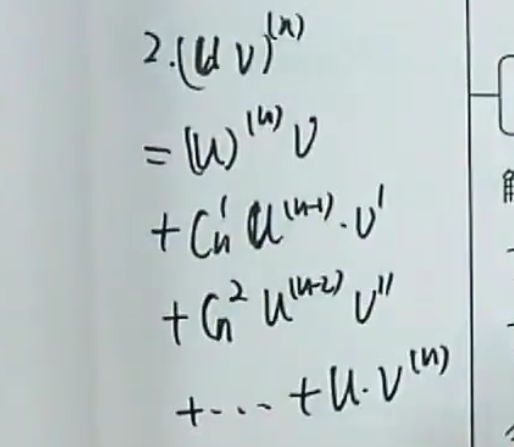 2.(uv)^(n)
=(u)^(n) v
+C_n^1 u^(n-1)·v'
+C_n^2 u^(n-2) v''
+···+u·v^(n)